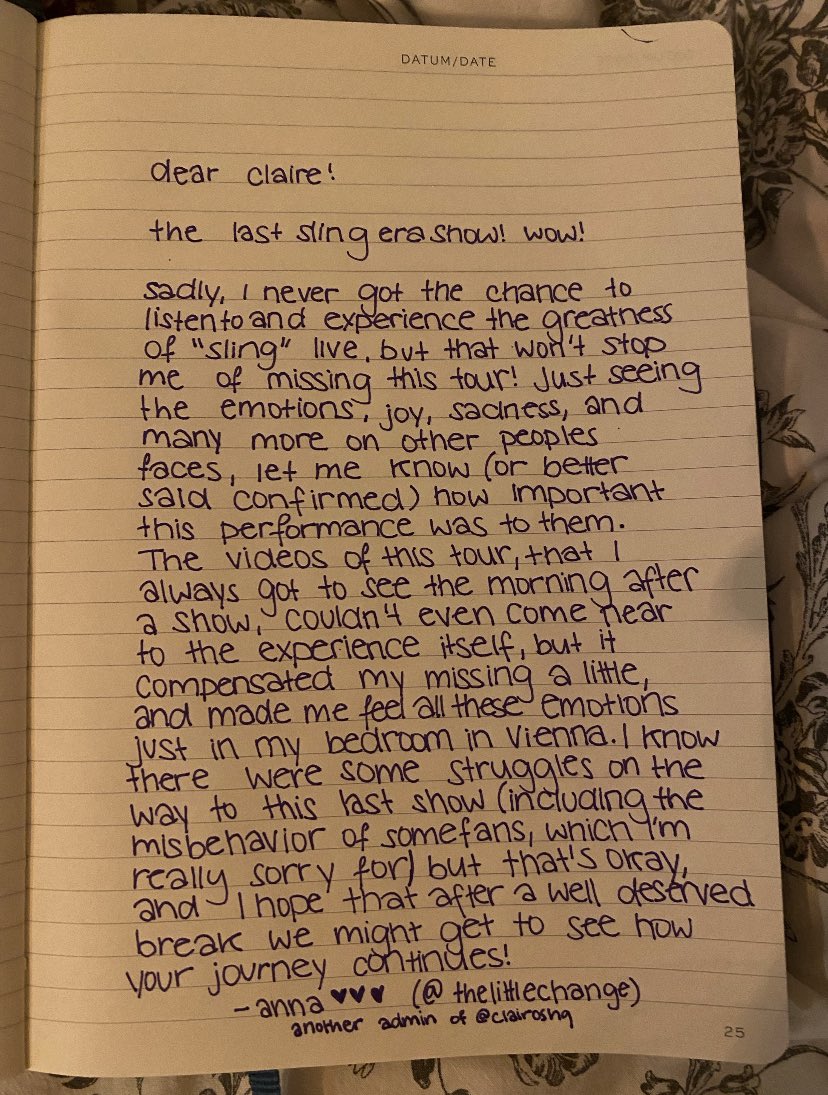 DATUM/DATE
dear claire!
the last sling era show! wow!
sadly, I never got the chance to
listen to and experience the greatness
of "sling" live, but that won't stop
me of missing this tour! Just seeing
the emotions, joy, sadness, and
many more on other peoples
faces, let me know (or better
said confirmed) how important
this performance was to them.
The videos of this tour, that I
always got to see the morning after
a show, couldn't even come near
to the experience itself, but it
compensated my missing a little,
and made me feel all these emotions
just in my bedroom in Vienna. I know
there were some struggles on the
way to this last show (including the
misbehavior of some fans, which I'm
really sorry for) but that's okay,
and I hope that after a well deserved
break we might get to see how
your journey continues!
-anna ♥♥♥ (@thelittlechange)
another admin of @clairoshq
25